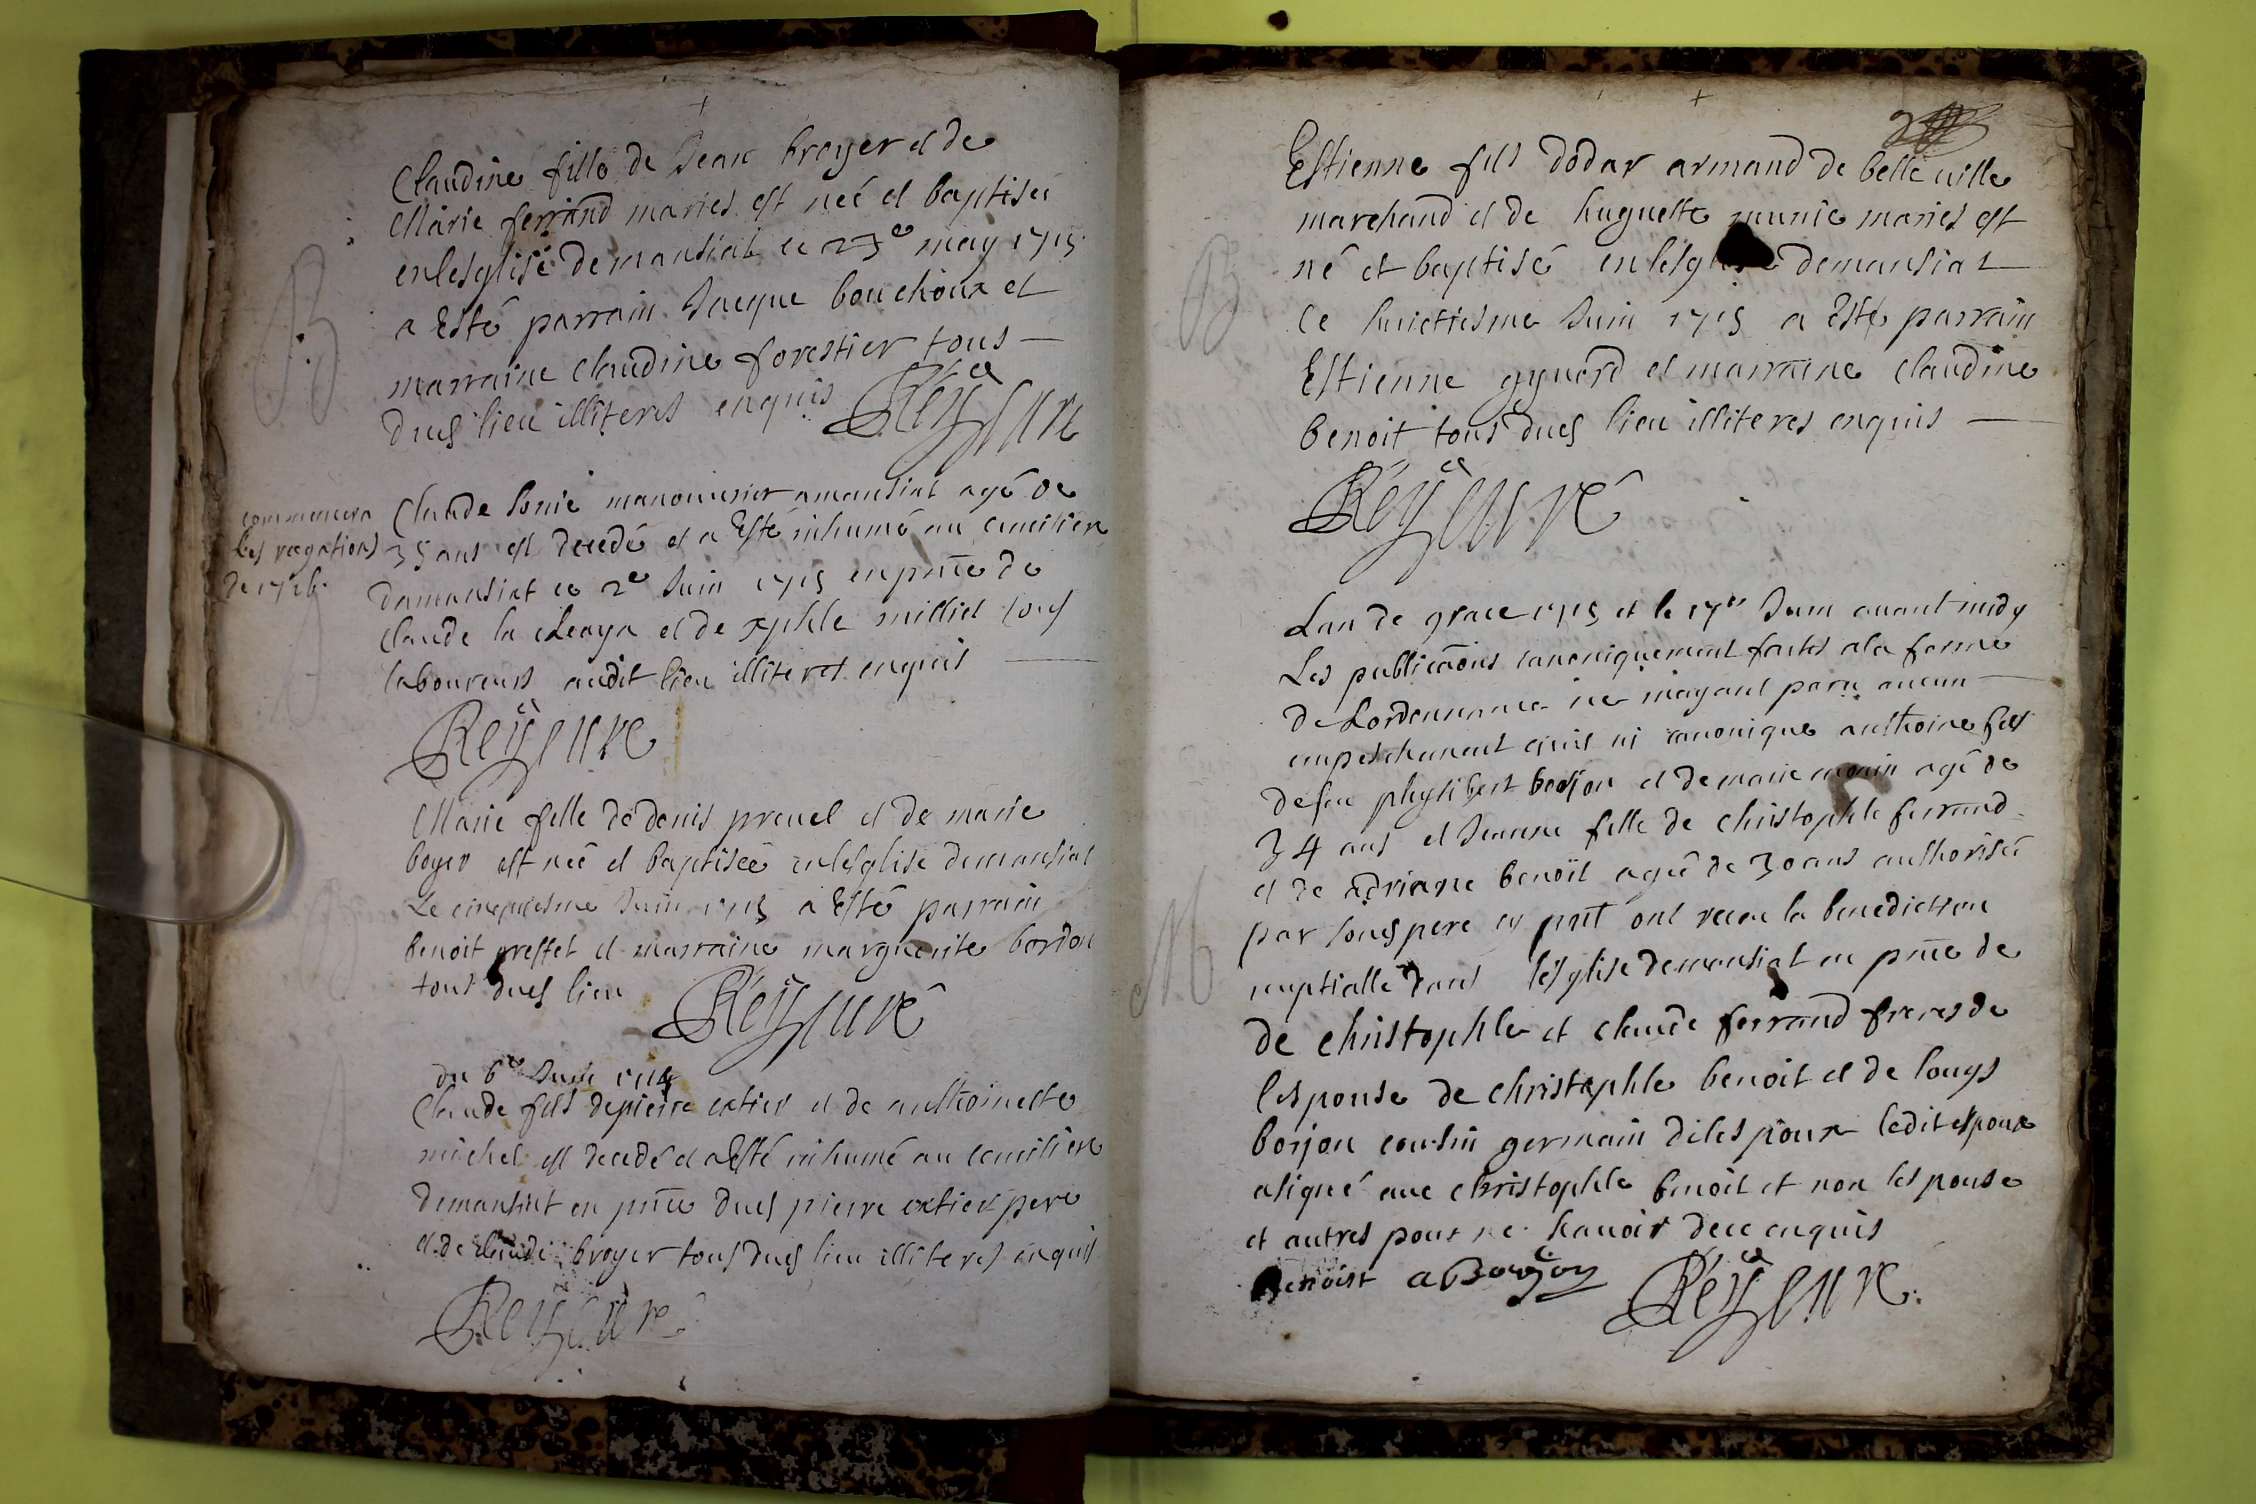 Claudine fille de Jean broyer et de
Marie ferrand mariés est neé et baptiseé
en lesglise de mansiat ce 23e may 1715
a Esté parrain Jacque bouchoux et
marraine claudine forestier tous
dud lieu illiteres enquis
Réÿ curé
commencera
les rogations
de 1716.
Claude manouvrier a mansiat agé de
35 ans est decedé et a Esté inhumé au cimitiere
de mansiat ce 2e Juin 1715 en pnce de
claude la et de xphle milliet tous
laboureurs audit lieu illiteres enquis
Réÿ curé
Marie fille de denis prevel et de marie
boyer est neé et baptiseé en lesglise de mansiat
Le cinquiesme Juin 1715 a Esté parrain
benoit greffet et marraine marguerite borjon
tout dud lieu
Réÿ curé
du 6e Juin
Claude fils de pierre et de anthoinette
michel est decedé et a Esté inhumé au cimitiere
de mansiat en pnce dud pierre pere
et de claude broyer tous dud lieu illiteres enquis
Réÿ curé
Estienne fils dodar armand de belle ville
marchand et de huguette munie mariés est
né et baptisé en lésglise de mansiat
Ce huictiesme Juin 1715 a Esté parrain
Estienne et marraine claudine
benoit tous dud lieu illiteres enquis
Réÿ curé
Lan de grace 1715 et le 17e Juin avant midy
Les publicaõns canoniquement faites a la forme
de Lordonnance ne niayant paru aucun
empeschement civil ni canonique anthoine fils
de feu phylibert borjon et de marie agé de
34 ans et Jeanne fille de christophle ferrand
et de adriane benoit ageé de 30 ans authoriseé
par soud pere cy pnt ont receu la benediction
nuptialle dans lésglise de mansiat en pnce de
de christophle et claude ferrand freres de
lespouse de christophle benoit et de louys
borjon cousin germain diles poux ledit espoux
a signé avec christophle benoit et non lespouse
et autres pour ne scavoir de ce enquis
Benoist a Borjon Réÿ curé